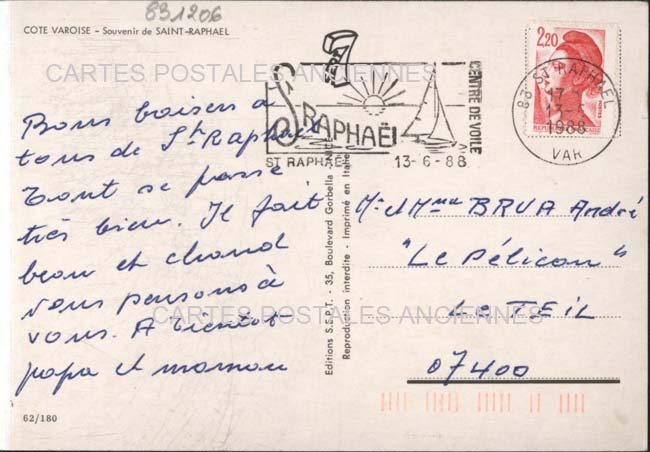 831206
COTE VAROISE - Souvenir de SAINT-RAPHAEL
CARTES POSTALES ANCIENNES
St RAPHAËL
CENTRE DE VOILE
ST RAPHAËL 13-6-88
83 ST RAPHAEL
17 H
13-6
1988
VAR
2,20
Bons baisers a
tous de St Raphael
Tout se passe
très bien. Il fait
beau et chaud
nous pensons à
vous. A bientôt
papa et maman
62/180
Editions S.E.P.T. - 35, Boulevard Gorbella
Reproduction interdite - Imprimé en Italie
Mr et Mme BRUA André
"Le Pélican"
Le TEIL
07400
CARTES POSTALES ANCIENNES